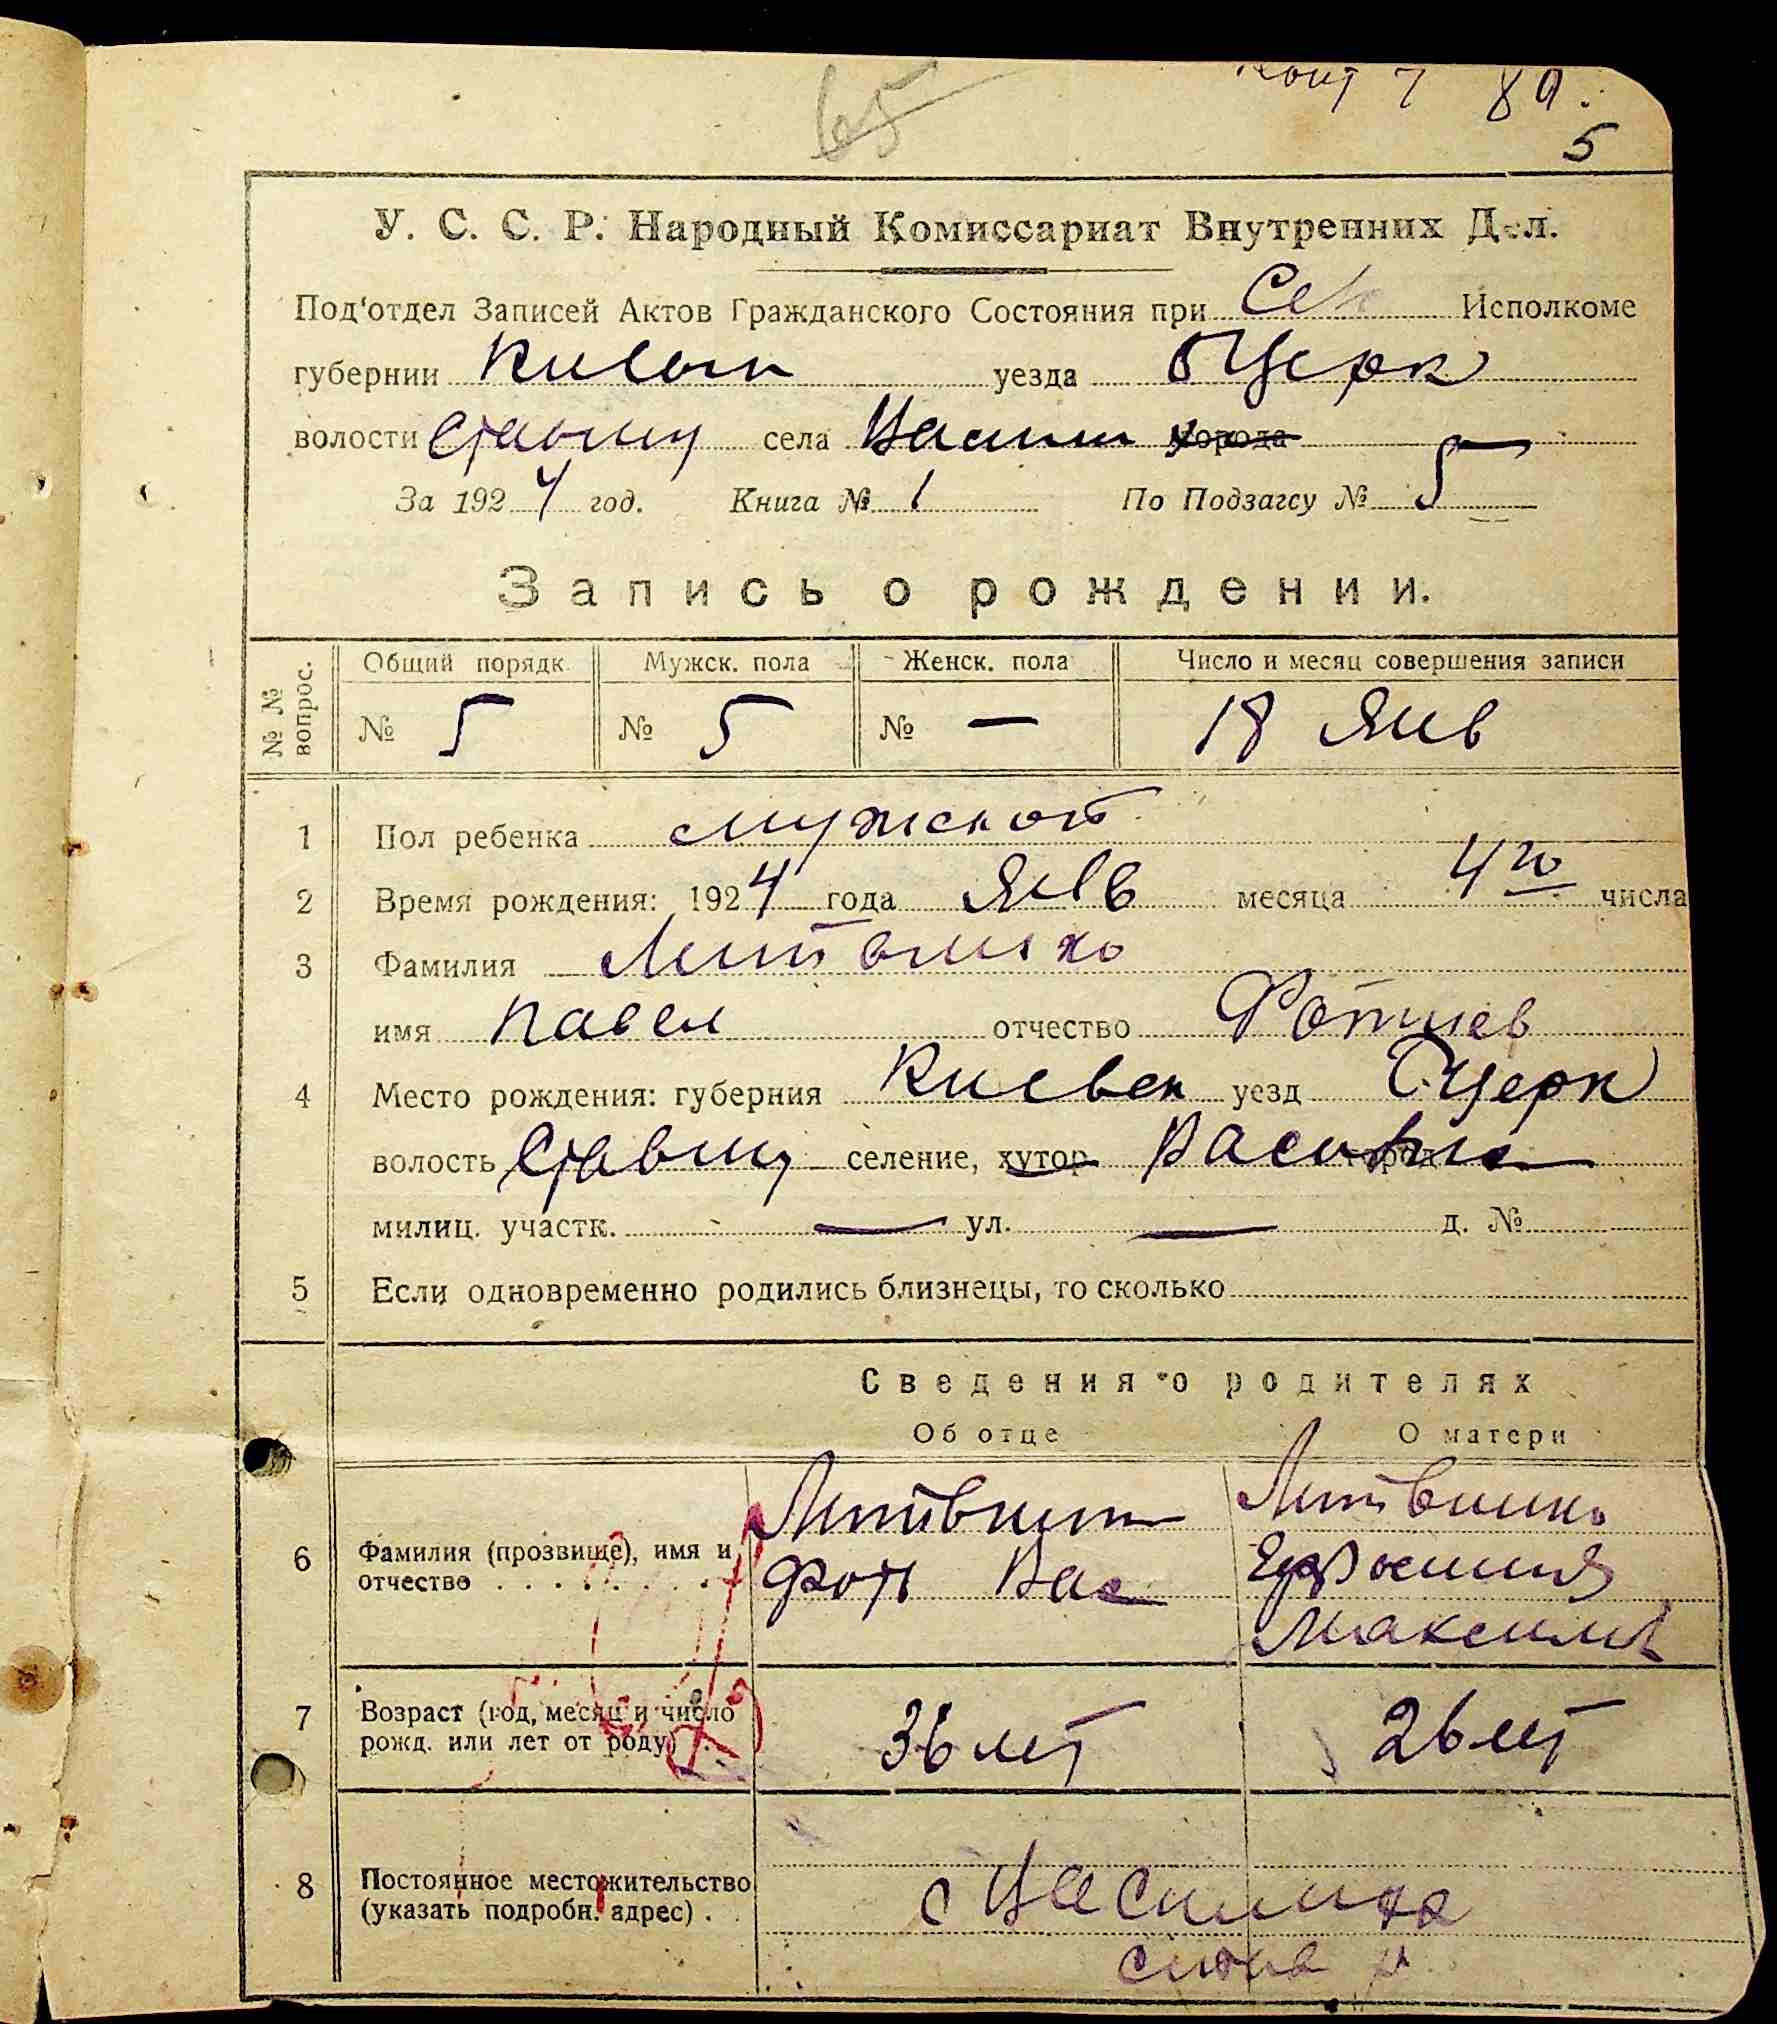 65
89.
5
У. С. С. Р. Народный Комиссариат Внутренних Дел.
Под'отдел Записей Актов Гражданского Состояния при Сель Исполкоме
губернии Киевск уезда БЦерк
волости Ставищ села города
За 1924 год. Книга № 1 По Подзагсу № 5
Запись о рождении.
№№ вопрос. Общий порядк. Мужск. пола Женск. пола Число и месяц совершения записи
№ 5 № 5 № — 18 Янв
1 Пол ребенка мужской
2 Время рождения: 1924 года Янв месяца 4го числа
3 Фамилия Литвинко
имя Павел отчество Фотиев
4 Место рождения: губерния Киевск уезд БЦерк
волость Ставищ селение, хутор город
милиц. участк. — ул. — д. №
5 Если одновременно родились близнецы, то сколько
Сведения о родителях
Об отце О матери
6 Фамилия (прозвище), имя и отчество Литвин Литвинко
Фот Вас Ефросиния
Максимов
7 Возраст (год, месяц и число рожд. или лет от роду) 36 лет 26 лет
8 Постоянное местожительство (указать подробн. адрес) с